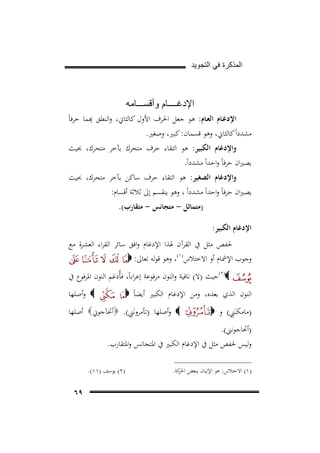 المذكرة في التجويد
الإدغـــــام وأقســـــامه
الإدغام العام: هو جعل الحرف الأول كالثاني، والنطق بهما حرفاً
مشدداً كالثاني، وهو قسمان: كبير، وصغير.
والإدغام الكبير: هو التقاء حرف متحرك بآخر متحرك، بحيث
يصيران حرفاً واحداً مشدداً.
والإدغام الصغير: هو التقاء حرف ساكن بآخر متحرك، بحيث
يصيران حرفاً واحداً مشدداً ، وهو ينقسم إلى ثلاثة أقسام:
(متماثل – متجانس – متقارب).
الإدغام الكبير:
لحفص مثل في القرآن لهذا الإدغام وافق سائر القراء العشرة مع
وجوب الإشمام أو الاختلاس(١)، وهو قوله تعالى: ﴿ مَا لَكَ لَا تَأْمَنَّا عَلَى
يُوسُفَ ﴾(٢) حيث (لا) نافية والنون مرفوعة إعراباً، فأدغم النون المرفوع في
النون الذي بعده، ومن الإدغام الكبير أيضاً ﴿ مَا مَكَّنِّي ﴾ وأصلها
(مامكنني) و ﴿ تَأْمُرُوٓنِّي ﴾ وأصلها (تأمرونني). ﴿أتحاجوني﴾ أصلها
(أتحاجونني).
وليس لحفص مثل في الإدغام الكبير في المتجانس والمتقارب.
(١) الاختلاس: هو الإتيان ببعض الحركة. (٢) يوسف (١١).
٦٩